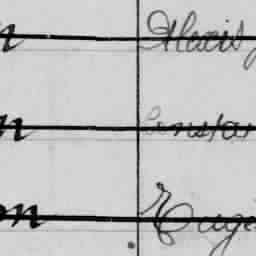 n Alexis
n Constan
on Euge